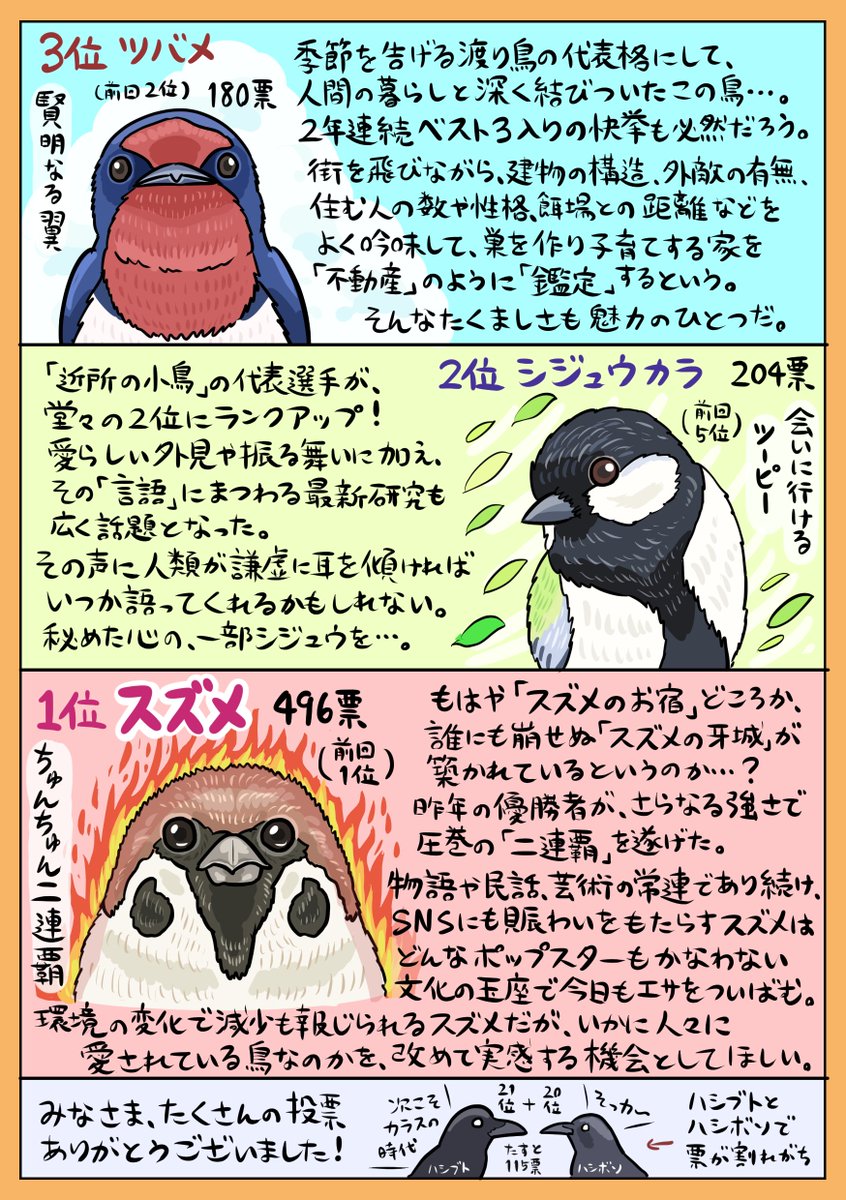 3位 ツバメ
(前回2位) 180票
賢明なる翼
季節を告げる渡り鳥の代表格にして、
人間の暮らしと深く結びついたこの鳥…。
2年連続ベスト3入りの快挙も必然だろう。
街を飛びながら、建物の構造、外敵の有無、
住む人の数や性格、餌場との距離などを
よく吟味して、巣を作り子育てする家を
「不動産」のように「鑑定」するという。
そんなたくましさも魅力のひとつだ。
2位 シジュウカラ 204票
(前回
5位)
会いに行ける
ツーピー
「近所の小鳥」の代表選手が、
堂々の2位にランクアップ!
愛らしい外見や振る舞いに加え、
その「言語」にまつわる最新研究も
広く話題となった。
その声に人類が謙虚に耳を傾ければ
いつか語ってくれるかもしれない。
秘めた心の、一部シジュウを…。
1位 スズメ 496票
(前回
1位)
ちゅんちゅん二連覇
もはや「スズメのお宿」どころか、
誰にも崩せぬ「スズメの牙城」が
築かれているというのか…?
昨年の優勝者が、さらなる強さで
圧巻の「二連覇」を遂げた。
物語や民話、芸術の常連であり続け、
SNSにも賑わいをもたらすスズメは
どんなポップスターもかなわない
文化の玉座で今日もエサをついばむ。
環境の変化で減少も報じられるスズメだが、いかに人々に
愛されている鳥なのかを、改めて実感する機会としてほしい。
みなさま、たくさんの投票
ありがとうございました!
次こそ
カラスの
時代
21位 + 20位
たすと
115票
そっカー
ハシブト
ハシボソ
ハシブトと
ハシボソで
票が割れがち